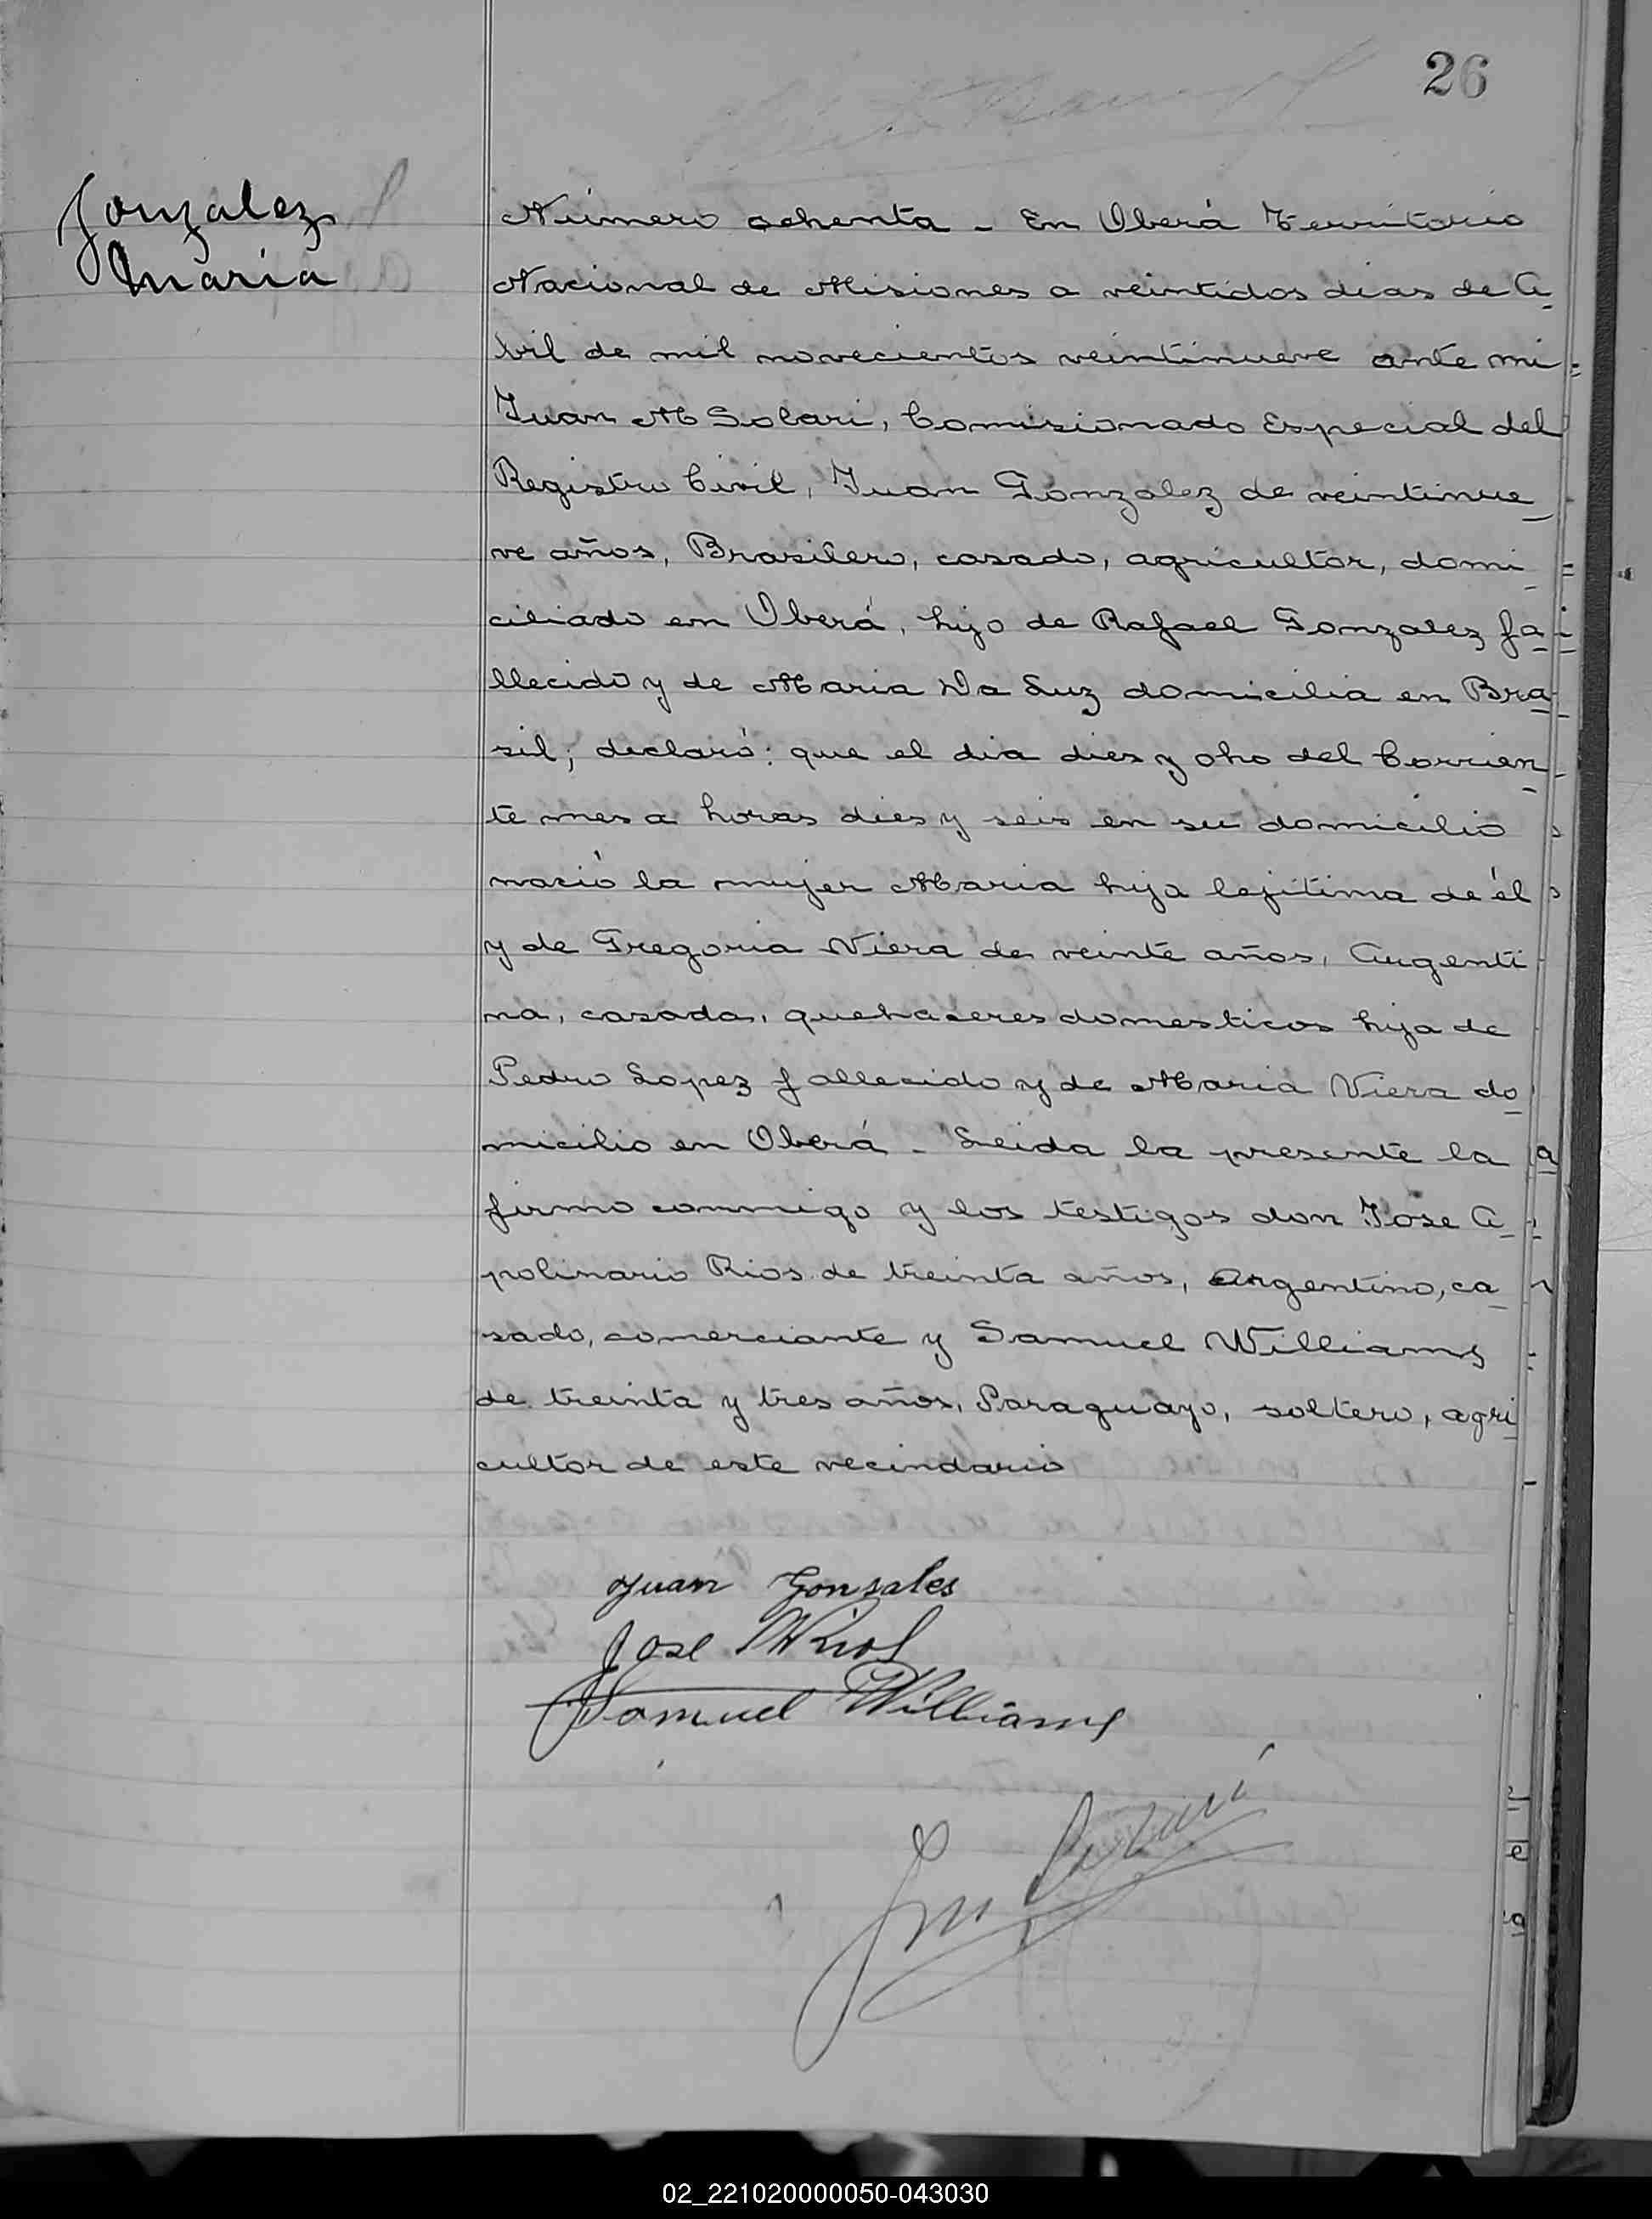 26
Gonzalez
Maria
Número ochenta - En Oberá Territorio
Nacional de Misiones a veintidos dias de A
bril de mil novecientos veintinueve ante mi
Juan M Solari, Comisionado Especial del
Registro Civil, Juan Gonzalez de veintinue
ve años, Brasilero, casado, agricultor, domi
ciliado en Oberá, hijo de Rafael Gonzalez fa
llecido y de Maria Da Luz domicilia en Bra
sil; declaró: que el dia dies y oho del Corrien
te mes a horas dies y seis en su domicilio
nació la mujer Maria hija lejitima de él
y de Gregoria Viera de veinte años, Argenti
na, casada, quehaseres domesticos hija de
Pedro Lopez fallecido y de Maria Viera do
micilio en Oberá - Leida la presente la
firmo conmigo y los testigos don Jose A
polinario Rios de treinta años, Argentino, ca
sado, comerciante y Samuel Williams
de treinta y tres años, Paraguayo, soltero, agri
cultor de este vecindario
Juan Gonsales
Jose Rios
Samuel Williams
02_221020000050-043030